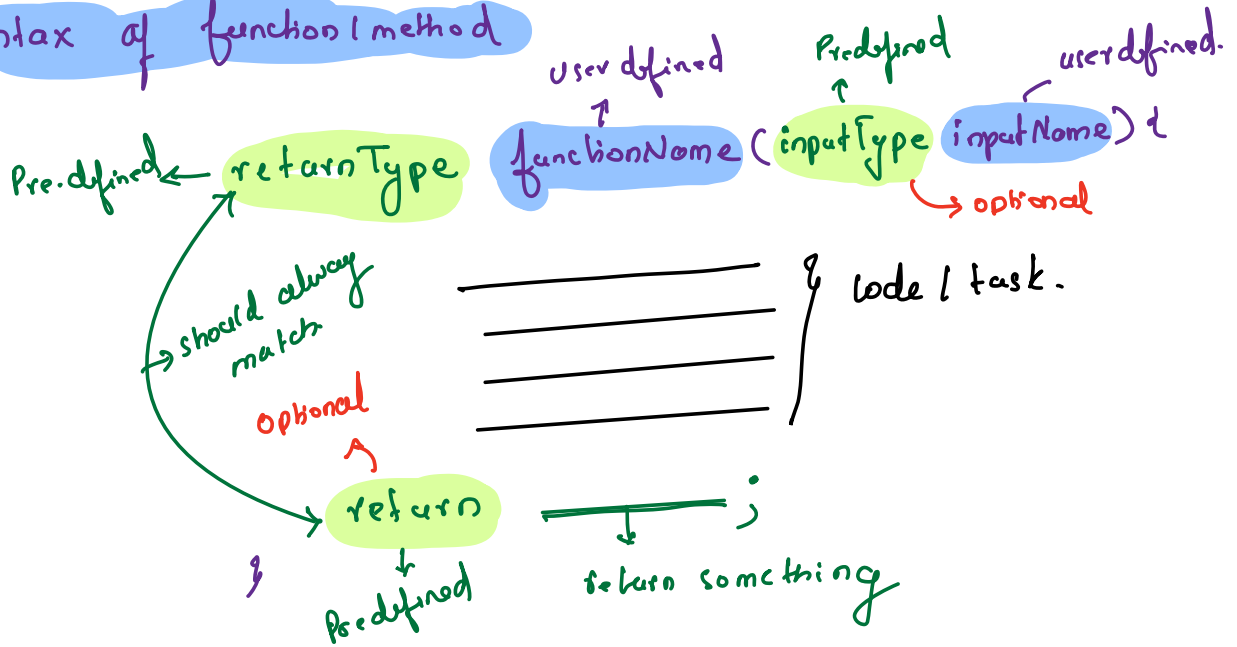 ntax of function / method
userdefined
Predefined
userdefined.
Pre.defined
returnType functionName (inputType inputName) {
optional
should alway
match
} code / task.
optional
return ;
}
Predefined
return something